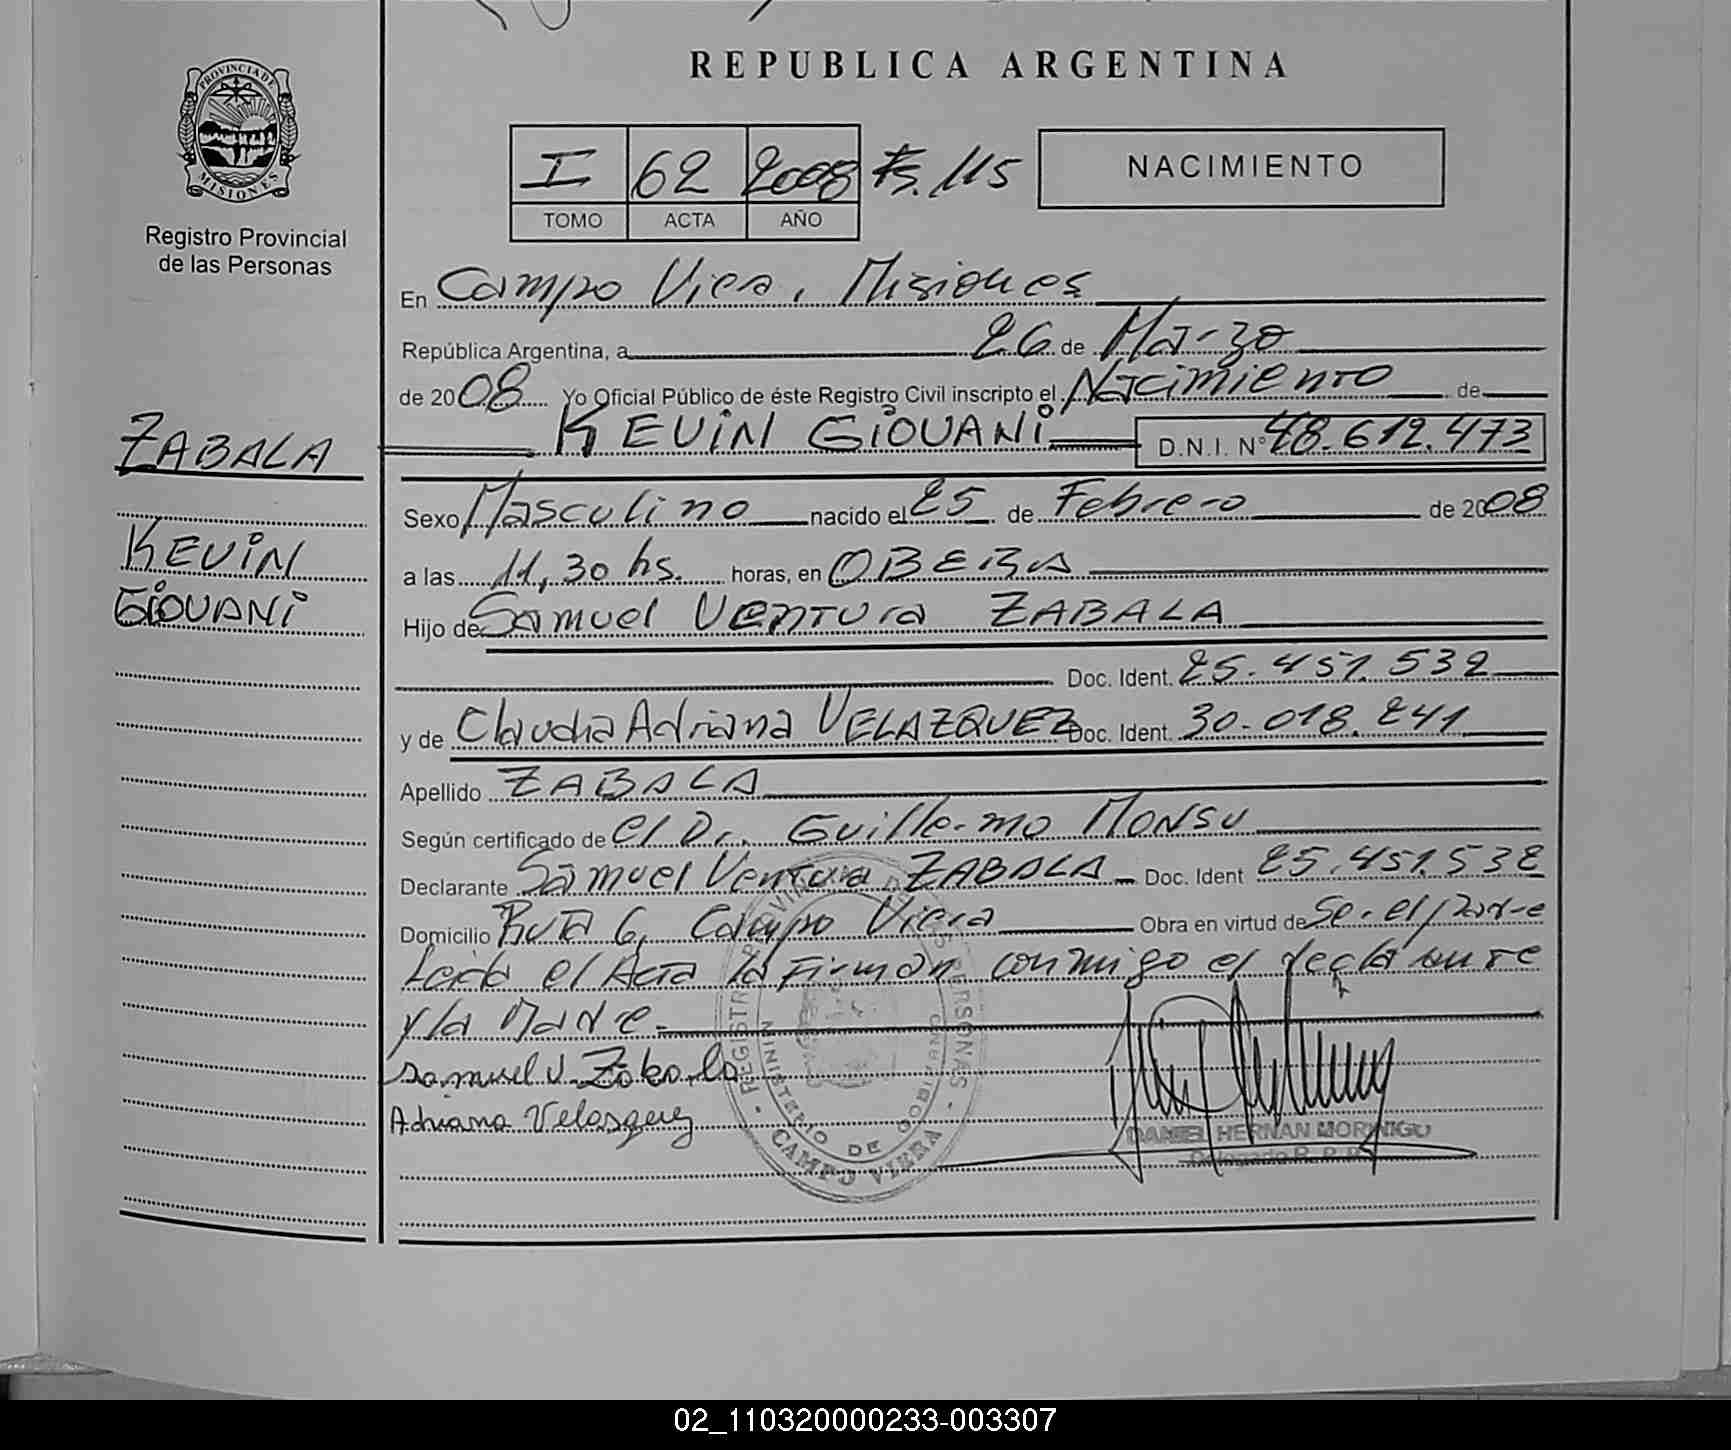 REPUBLICA ARGENTINA
PROVINCIA DE MISIONES
Registro Provincial
de las Personas
I 62 2008 Fs. 115
TOMO ACTA AÑO
NACIMIENTO
En Campo Viera, Misiones
República Argentina, a 26 de Marzo
de 2008 Yo Oficial Público de éste Registro Civil inscripto el Nacimiento de
KEVIN GIOVANI D.N.I. Nº 48.612.473
ZABALA
KEVIN
GIOVANI
Sexo Masculino nacido el 25 de Febrero de 2008
a las 11,30 hs. horas, en OBERA
Hijo de Samuel VENTURA ZABALA
Doc. Ident. 25.451.532
y de Claudia Adriana VELAZQUEZ Doc. Ident. 30.018.241
Apellido ZABALA
Según certificado de el Dr. Guillermo MONSU
Declarante Samuel Ventura ZABALA Doc. Ident 25.451.532
Domicilio Ruta 6, Campo Viera Obra en virtud de Ser el padre
Leida el Acta la Firman conmigo el declarante
y la Madre.
Samuel V. Zabala
Adriana Velasquez
REGISTRO PROVINCIAL DE LAS PERSONAS
MINISTERIO DE GOBIERNO
CAMPO VIERA
DANIEL HERNAN MORINIGO
Delegado R. P. P.
02_110320000233-003307